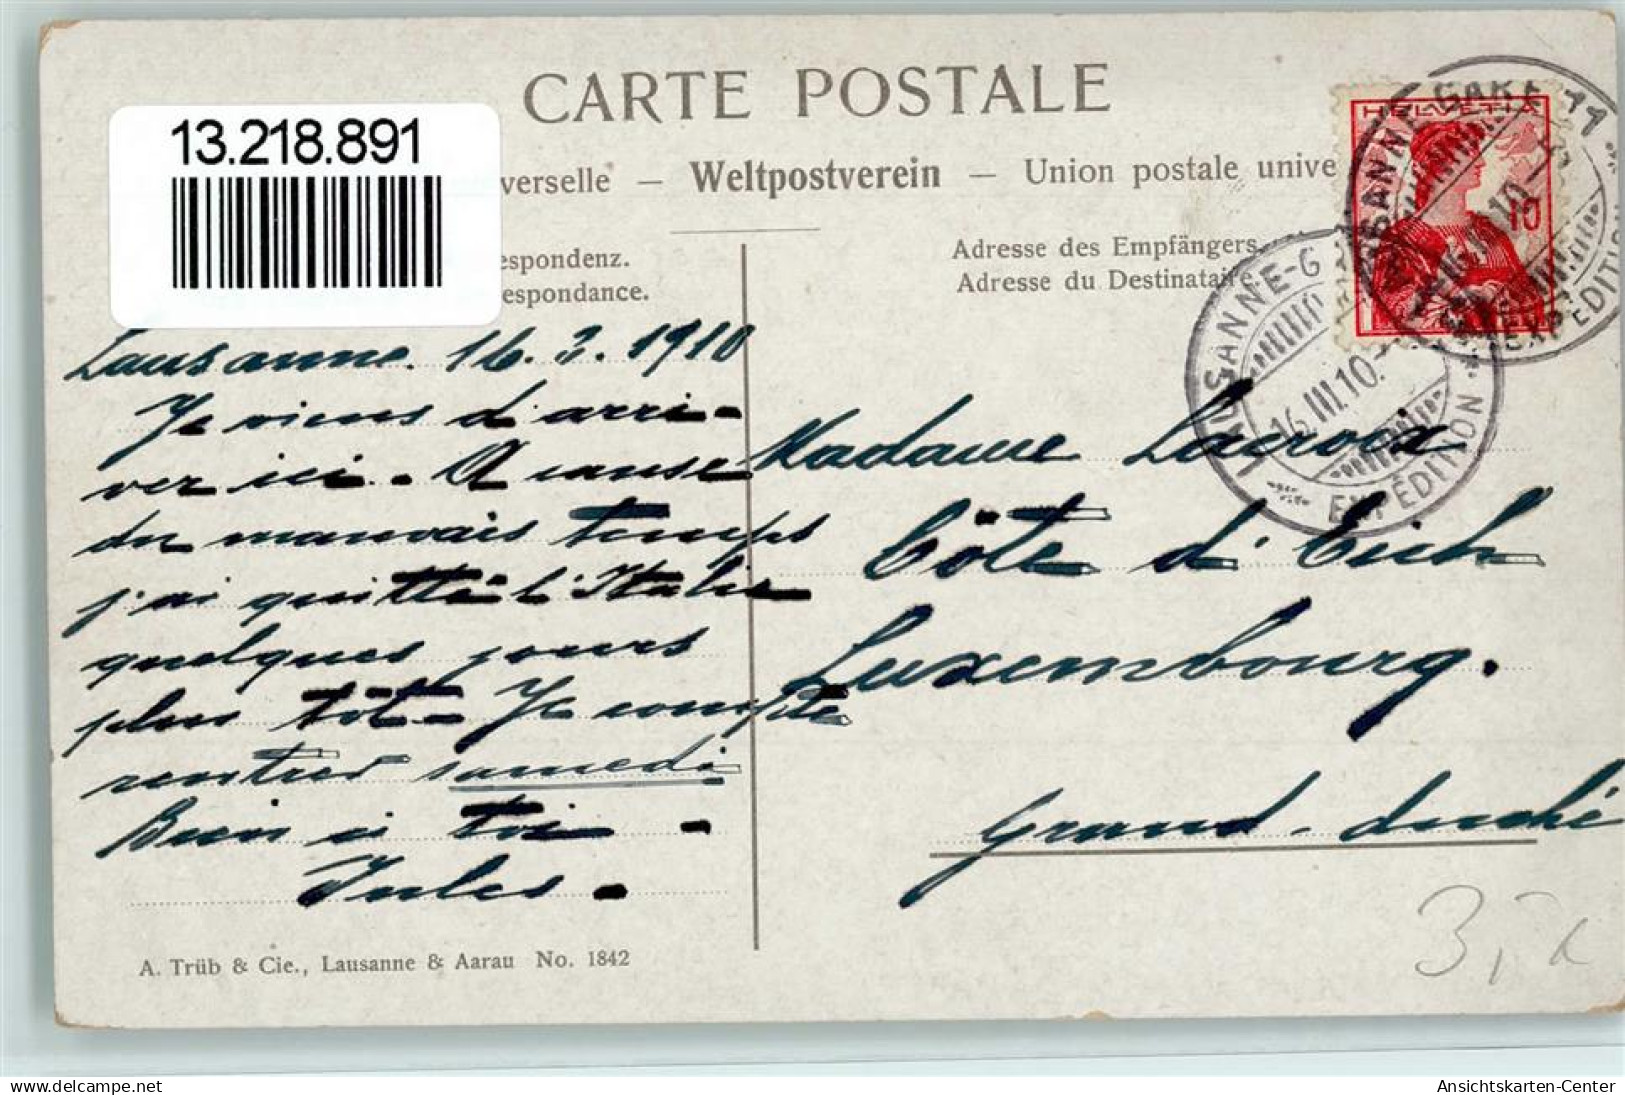 CARTE POSTALE
13.218.891
verselle — Weltpostverein — Union postale unive
espondenz.
espondance.
Adresse des Empfängers.
Adresse du Destinataire.
HELVETIA
10
LAUSANNE-GARE
EXPÉDITION
LAUSANNE-G
16.III.10.
EXPÉDITION
Lausanne. 16.3.1910
Je viens d'arri-
ver ici. A cause
du mauvais temps
j'ai quitté l'Italie
quelques jours
plus tôt. Je compte
rentrer samedi
Bien à toi.
Jules.
Madame Lacroix
Côte d'Eich
Luxembourg.
Grand-duché
A. Trüb & Cie., Lausanne & Aarau No. 1842
oldthing.de
Ansichtskarten-Center